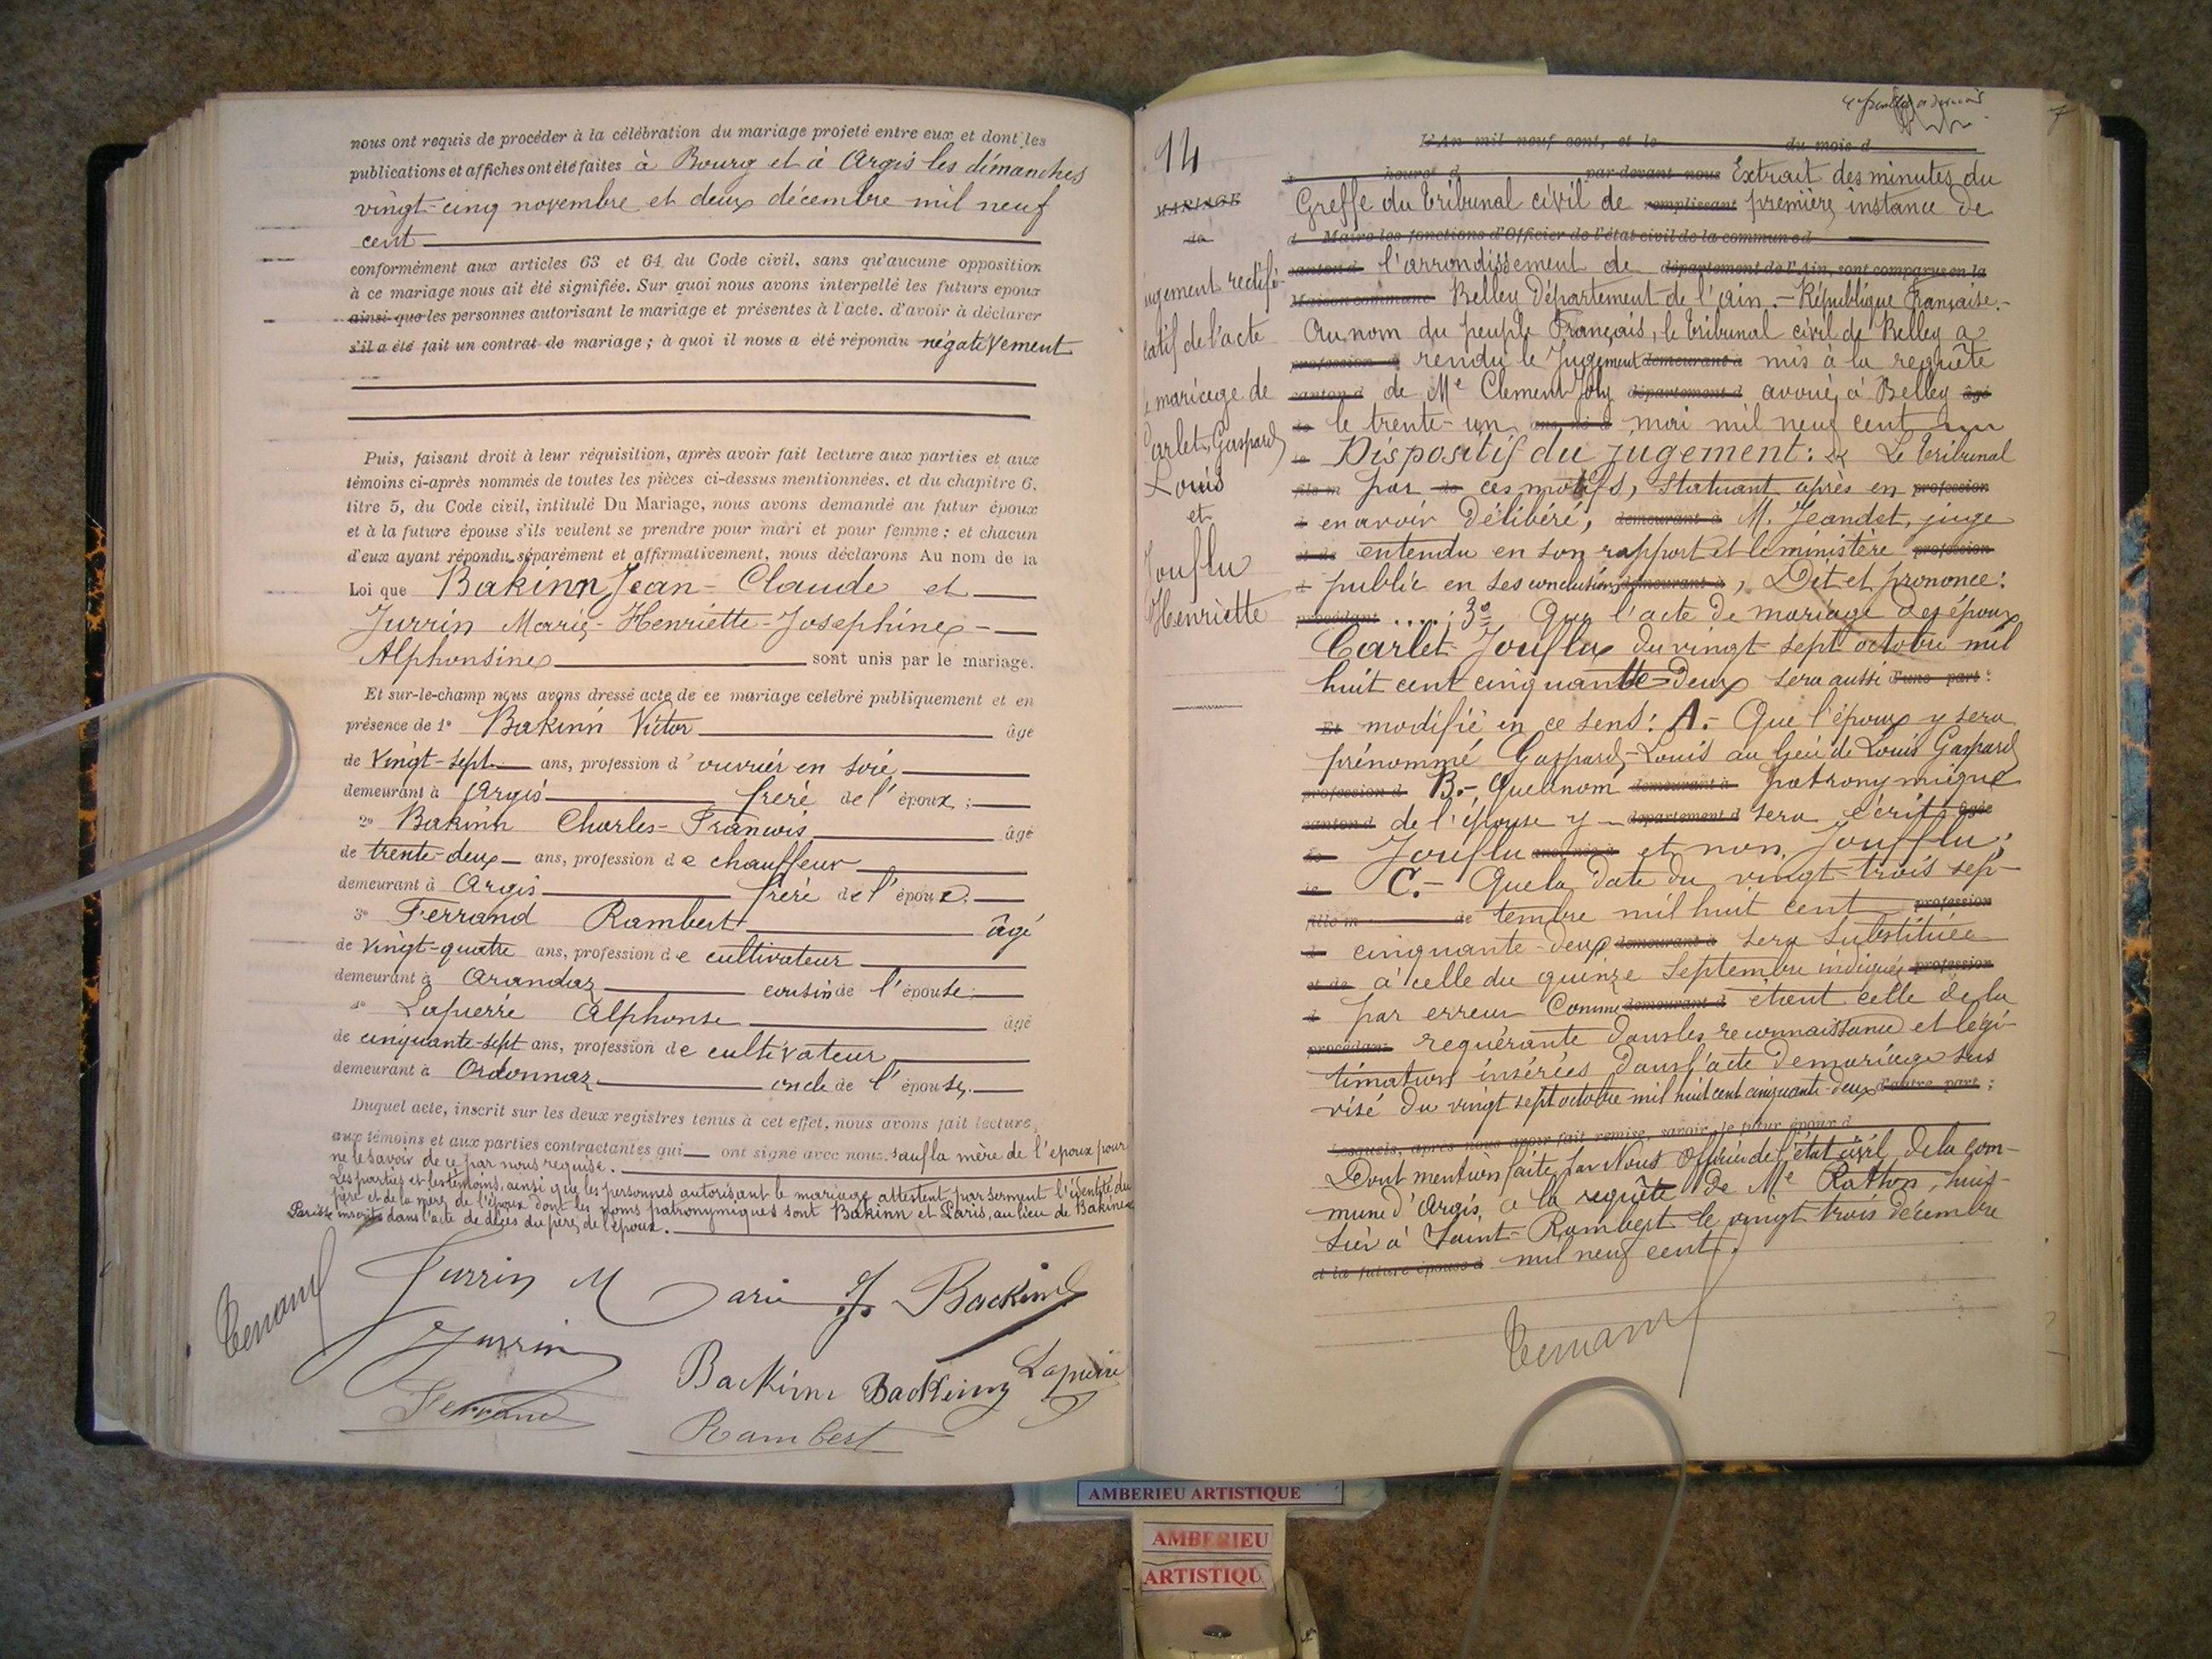 nous ont requis de procéder à la célébration du mariage projeté entre eux et dont les
publications et affiches ont été faites à Bourg et à Argis les démanches
vingt-cinq novembre et deux décembre mil neuf
cent
conformément aux articles 63 et 64 du Code civil, sans qu'aucune opposition
à ce mariage nous ait été signifiée. Sur quoi nous avons interpellé les futurs époux
ainsi que les personnes autorisant le mariage et présentes à l'acte, d'avoir à déclarer
s'il a été fait un contrat de mariage ; à quoi il nous a été répondu négativement
Puis, faisant droit à leur réquisition, après avoir fait lecture aux parties et aux
témoins ci-après nommés de toutes les pièces ci-dessus mentionnées, et du chapitre 6,
titre 5, du Code civil, intitulé Du Mariage, nous avons demandé au futur époux
et à la future épouse s'ils veulent se prendre pour mari et pour femme ; et chacun
d'eux ayant répondu séparément et affirmativement, nous déclarons Au nom de la
Loi que Bakinn Jean-Claude et
Jurrin Marie-Henriette-Josephine-
Alphonsine sont unis par le mariage.
Et sur-le-champ nous avons dressé acte de ce mariage célébré publiquement et en
présence de 1º Bakinn Victor âgé
de vingt-sept ans, profession d'ouvrier en soie
demeurant à Argis frère de l'époux ;
2º Bakinn Charles-François âgé
de trente-deux ans, profession de chauffeur
demeurant à Argis frère de l'époux.
3º Ferrand Rambert âgé
de vingt-quatre ans, profession de cultivateur
demeurant à Arandaz cousin de l'épouse
4º Lapierre Alphonse âgé
de cinquante-sept ans, profession de cultivateur
demeurant à Ordonnaz oncle de l'épouse.
Duquel acte, inscrit sur les deux registres tenus à cet effet, nous avons fait lecture
aux témoins et aux parties contractantes qui ont signé avec nous, sauf la mère de l'époux pour
ne le savoir de ce par nous requise.
Les parties et les témoins, ainsi que les personnes autorisant le mariage attestent par serment l'identité du
père et de la mère de l'époux dont les noms patronymiques sont Bakinn et Paris, au lieu de Bakine
Parisse inscrits dans l'acte de décès du père de l'époux.
Jurrin Marie J. Backinn
Jurrin
Backinn Backinn Lapierre
Ferrand
Rambert
14
L'An mil neuf cent, et le du mois d
à heures d par-devant nous Extrait des minutes du
MARIAGE
de
Jugement rectifi-
catif de l'acte
de mariage de
Carlet, Gaspard
Louis
et
Jouflu
Henriette
Greffe du tribunal civil de remplissant première instance de
d Maire les fonctions d'Officier de l'état civil de la commune d
canton d l'arrondissement de département de l'Ain, sont comparus en la
Maison commune Belley Département de l'Ain.- République Française.-
Au nom du peuple Français, le tribunal civil de Belley a
profession d rendu le Jugement demeurant à mis à la requête
canton d de Me Clement Joly département d avoué, à Belley âgé
de le trente-un ans, né à mai mil neuf cent
le Dispositif du jugement : Le tribunal
fils m par de ces motifs, Statuant après en profession
d en avoir Délibéré, demeurant à M. Jeandet, juge
et de entendu en son rapport et le ministère profession
d public en ses conclusions demeurant à, Dit et prononce :
procédant .....; 3º Que l'acte de mariage des époux
Carlet-Jouflu du vingt-sept octobre mil
huit cent cinquante-Deux sera aussi d'une part :
Et modifié en ce sens : A.- Que l'époux y sera
prénommé Gaspard-Louis au lieu de Louis Gaspard
profession d B.- Que le nom demeurant à patronymique
canton d de l'épouse y département d sera écrit âgée
de Jouflu ans, née à et non Joufflu ;
le C.- Que la date du vingt-trois sep-
fille m de tembre mil huit cent profession
d cinquante-deux demeurant à sera substituée
et de à celle du quinze Septembre indiquée profession
d par erreur Comme demeurant à étant celle de la
procédant requérante dans les reconnaissance et légi-
timation insérées dans l'acte de mariage sus
visé du vingt sept octobre mil huit cent cinquante deux d'autre part ;
Lesquels, après nous avoir fait remise, savoir, le futur époux d
Dont mention faite par Nous Officier de l'état civil de la com-
mune d'Argis, à la requête de Me Rathon, huis-
sier à Saint-Rambert le vingt trois décembre
et la future épouse d mil neuf cent.
AMBERIEU ARTISTIQUE
AMBERIEU
ARTISTIQU